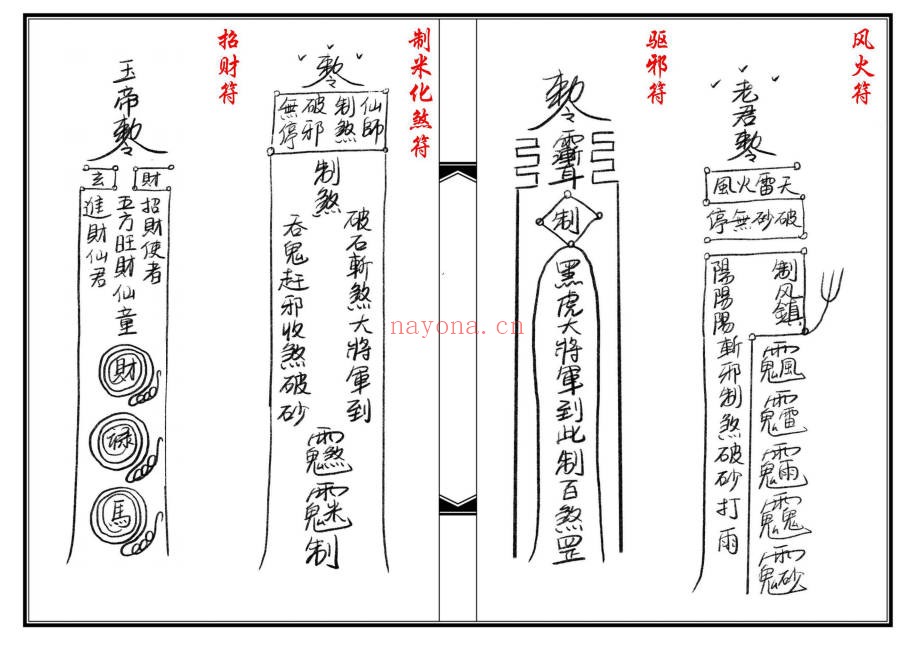 风火符
老君敕令
天雷火風
破砂無停
制风鎮
陽陽陽斬邪制煞破砂打雨
驱邪符
敕令
制
黑虎大將軍到此制百煞罡
制米化煞符
敕令
仙師
制煞
破邪
無停
制煞
破石斬煞大將軍到
吞鬼赶邪收煞破砂
制
招财符
玉帝敕令
財
玄
招財使者
五方旺財仙童
進財仙君
財
禄
馬
nayona.cn